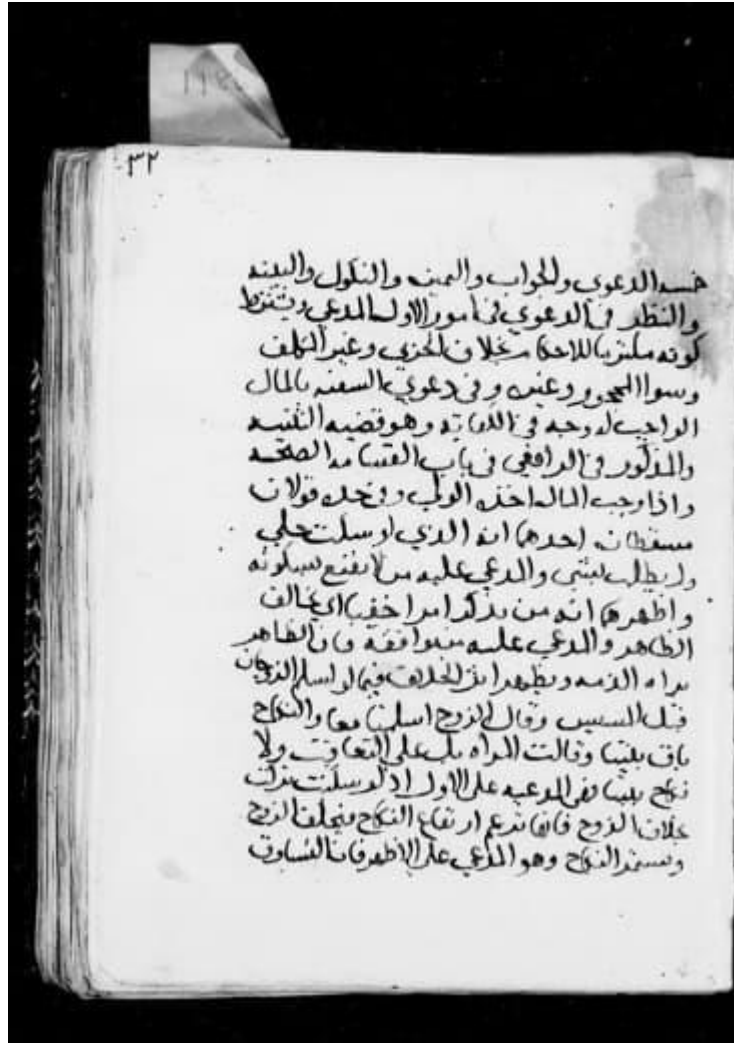 ٣٢
خمسه الدعوي والجواب واليمين والنكول والبينه
والنظر في الدعوي في امور الاول المدعي ويشترط
كونه ملتزما للاحكام بخلاف الحربي وغير المكلف
وسوا المحجور وغيره وفي دعوي السفيه بالمال
الواجب له وجه في وهو قضيه التنبيه
والمذكور في الرافعي في باب القسامه الصحه
واذا وجب المال اخذه الولي وفي حده قولان
احدهما انه الذي لو سكت خلي
ولم يطالب بشي والمدعي عليه من لا يقنع بسكوته
واظهرهما انه من يذكر امرا خفيا اي يخالف
الظاهر والمدعي عليه من يوافقه فان الظاهر
براه الذمه ويظهر اثر الخلاف فيما لو اسلم الزوجان
قبل المسيس وقال الزوج اسلمنا معا والنكاح
باق بيننا وقالت المراه بل على التعاقب ولا
نكاح بيننا فهي المدعيه على الاول اذ لو سكتت تركت
بخلاف الزوج فانها تزعم ارتفاع النكاح فيحلف الزوج
ويستمر النكاح وهو المدعي على الاظهر فان التساوق